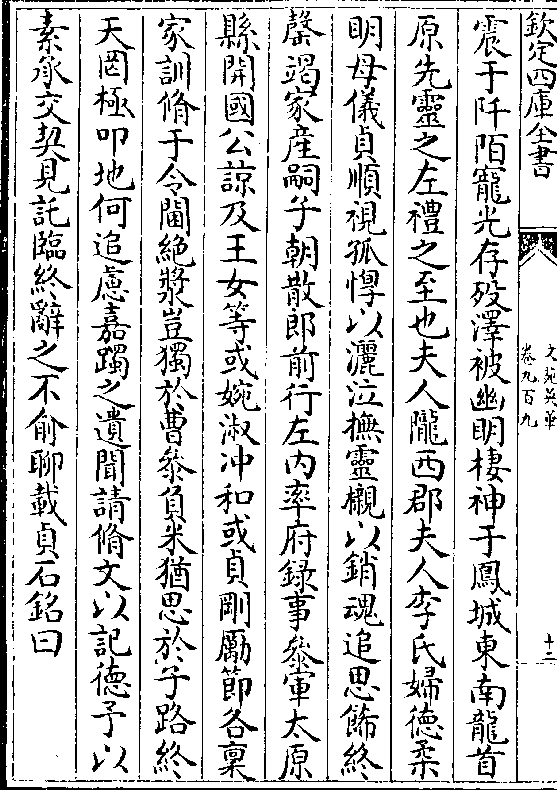 欽定四庫全書
文苑英華
卷九百九
十二
震于阡陌寵光存殁澤被幽明棲神于鳳城東南龍首
原先靈之左禮之至也夫人隴西郡夫人李氏婦德柔
明母儀貞順視孤惸以灑泣撫靈櫬以銷魂追思飾終
罄竭家産嗣子朝散郎前行左内率府録事參軍太原
縣開國公諒及王女等或婉淑冲和或貞剛勵節各稟
家訓脩于令閫絶漿豈獨於曹參負米猶思於子路終
天罔極叩地何追慮嘉躅之遺聞請脩文以記德予以
素承交契見託臨終辭之不俞聊載貞石銘曰